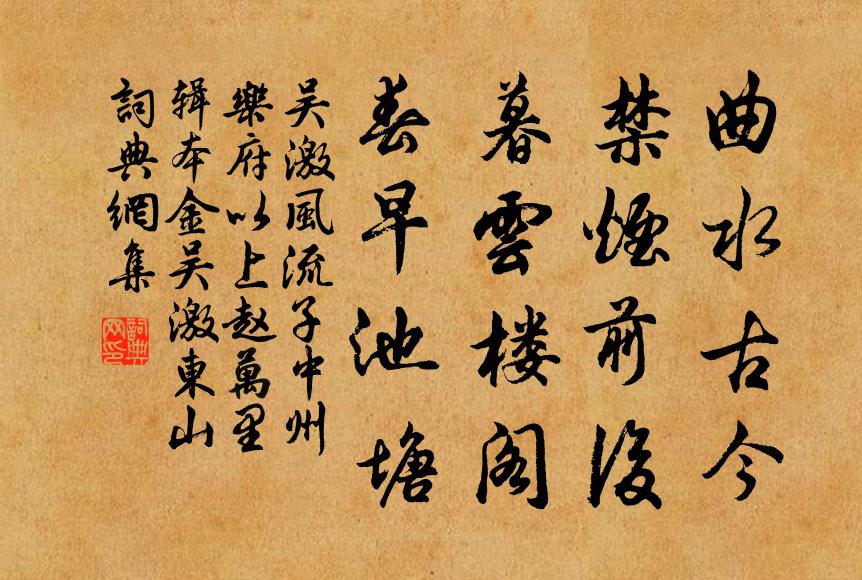 曲水古今
禁煙前後
暮雲楼阁
春早池塘
吴激風流子中州
樂府以上赵萬里
辑本金吴激東山
詞典網集
詞典
网印